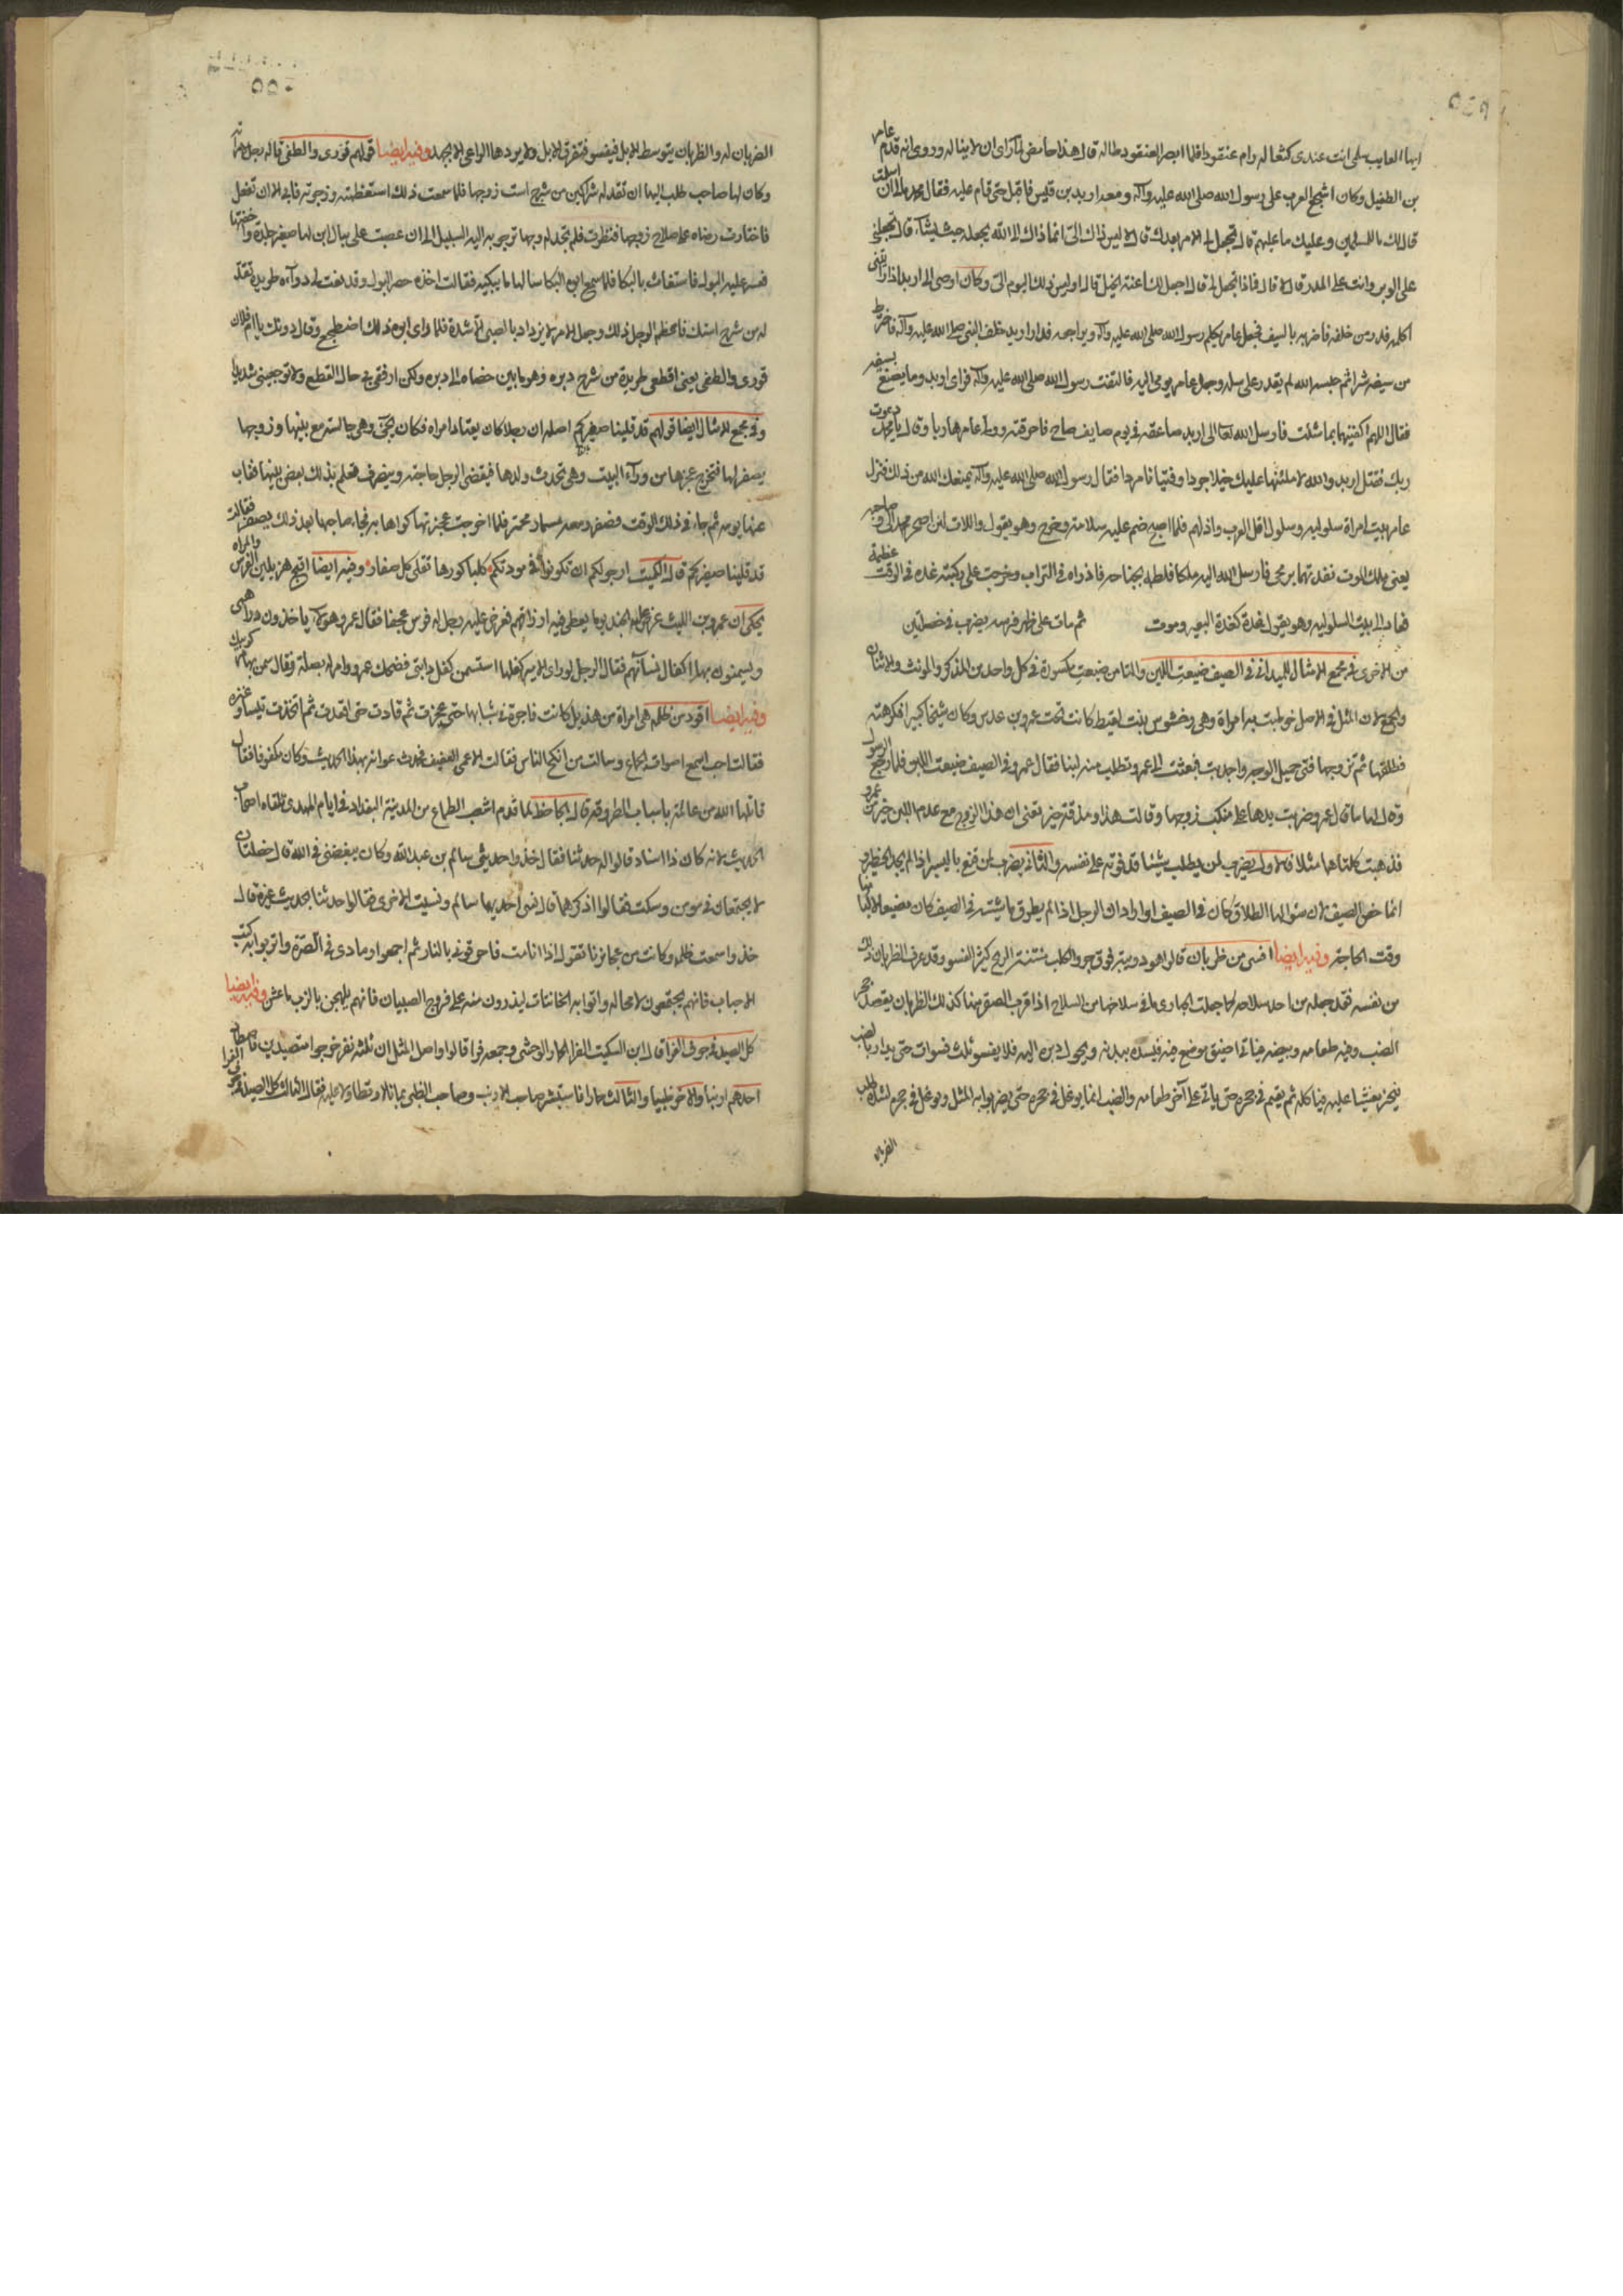 ايها العايب سلمى انت عندى كثعاله رام عنقودا فلما ابصر العنقود طاله قال هذا حامض لما راى ان لا يناله وروى انه قدم عامر
بن الطفيل وكان اشجع العرب على رسول الله صلى الله عليه وآله ومعه اربد بن قيس فاقبل حتى قام عليه فقال محمد مالى ان اسلمت
قال لك ما للمسلمين وعليك ما عليهم قال تجعل لى الامر بعدك قال لا ليس ذاك الىّ انما ذاك الى الله يجعله حيث يشآء قال تجعلنى
على الوبر وانت على المدر قال لا قال فماذا تجعل لى قال اجعل لك اعنة الخيل قال اوليس ذلك اليوم الىّ وكان اوصى الى اربد اذا رايتنى
اكلمه فدر من خلفه فاضربه بالسيف فجعل عامر يكلم رسول الله صلى الله عليه وآله ويراجعه فدار اربد خلف النبى صلى الله عليه وآله فاخترط
من سيفه شبرا ثم حبسه الله لم يقدر على سله وجعل عامر يومى اليه فالتفت رسول الله صلى الله عليه وآله فراى اربد وما يصنع بسيفه
فقال اللهم اكفنيهما بما شئت فارسل الله تعالى اربد صاعقة فى يوم صايف صاح فاحرقته وولى عامر هاربا وقال يا محمد دعوت
ربك فقتل اربد والله لاملئنها عليك خيلا جردا وفتيانا مردا فقال رسول الله صلى الله عليه وآله يمنعك الله من ذلك فنزل
عامر ببيت امراة سلوليه وسلول اقل العرب واذلهم فلما اصبح ضم عليه سلامته وخرج وهو يقول واللات لئن اصحر محمد الىّ وصاحبه
يعنى ملك الموت نفذتهما برمحى فارسل الله اليه ملكا فلطمه بجناحه فاذراه فى التراب وخرجت على ركبته غده فى الوقت عظيمة
فعاد الى بيت السلوليه وهو يقول غدة كغدة البعير وموت ثم مات على ظهر فرسه يضرب فى خصلتين
من الاخرى فى مجمع الامثال للميدانى فى الصيف ضيعت اللبن والتا من ضيعت مكسورة فى كل واحد من المذكر والمونث والاثنان
والجمع لان المثل فى الاصل خوطبت به امراة وهى دختنوس بنت لقيط كانت تحت عمرو بن عدس وكان شيخا كبيرا فكرهته
فطلقها ثم تزوجها فتى جميل الوجه واجدبت فبعثت الى عمرو تطلب منه لبنا فقال عمرو فى الصيف ضيعت اللبن فلما رجع الرسول
وقال لها ما قال عمرو ضربت يدها على منكب زوجها وقالت هذا ومذقة خير تعنى ان هذا الزوج مع عدم اللبن خير من عمرو
فذهبت كلماتها مثلا فالاول يضرب لمن يطلب شيئا قد فوته على نفسه والثانى يضرب لمن قنع باليسير اذا لم يجد الخطير و
انما خص الصيف لان سئوالها الطلاق كان فى الصيف او اراد ان الرجل اذا لم يطرق ماشيته فى الصيف كان مضيعا لالبانها
وقت الحاجة وفيه ايضا افسى من ظربان قالوا هو دويبة فوق جرو الكلب منتنة الريح كثير الفسو وقد عرف الظربان ذلك
من نفسه فقد جعله من احد سلاحه كما جعلت الحبارى ما فى سلاحها من السلاح اذا قرب الصقر منها كذلك الظربان يقصد جحر
الضب وفيه طعامه وبيضه فياتى اضيق موضع فيه فيسده ببدنه ويحول دبره اليه فلا يفسو ثلث فسوات حتى يدار بالضب
فيخر مغشيا عليه فياكله ثم يقيم فى جحره حتى ياتى على آخر طعامه والضب انما يوغل فى جحره حتى يضربوا به المثل ويوغل فى جحره لشدة طلب
الظربان
٥٥٠
الضربان له والظربان يتوسط الابل فيفسو فتفرق الابل ولا يردها الراعى الا بجهد وفيه ايضا قولهم قورى والطفى قاله رجل لامراته
وكان لها صاحب طلب اليها ان تقد له شراكين من شرج است زوجها فلما سمعت ذلك استعظمته وزجرته فابى الا ان تفعل
فاختارت رضاه على صلاح زوجها فنظرت فلم تجد له وجها ترجو به اليه السبيل الا ان عصبت على مبال ابن لها صغير جلدة واخفتها
فعسر عليه البول فاستغاث بالبكا فلما سمع ابوه البكا سالها ما يبكيه فقالت اخذه حصر البول وقد نعت لى دوآءه طريدة تقد
له من شرج استك فاعظم الرجل ذلك وجعل الامر لا يزداد بالصبى الا شدة فلما راى ابوه ذلك اضطجع وقال دونك يا ام فلان
قورى والطفى يعنى اقطعى طريدة من شرج دبره وهو ما بين خصاه الى دبره ولكن ارفقى فى حال القطع ولا توجعينى شديدا
وفى مجمع الامثال ايضا قولهم قد قلينا صفيركم اصله ان رجلا كان يعتاد امراه فكان يجئ وهى جالسة مع بنيها وزوجها
يصفر لها فتخرج عجزها من ورآء البيت وهى تحدث ولدها فيقضى الرجل حاجته وينصرف فعلم بذلك بعض بنيها فغاب
عنها يومه ثم جاء فى ذلك الوقت فصفر ومعه مسمار محمر فلما اخرجت عجزتها كواها به فجاء صاحبها بعد ذلك يصفر فقالت
قد قلينا صفيركم قال الكميت ارجو لكم ان تكونوا فى مودتكم كلبا كورهاء تقلى كل صفار وفيه ايضا اقبح هزيلين الفرس والمراه
يحكى ان عمرو بن الليث عرض عليه الجند يوما يعطى فيه ارزاقهم فعرض عليه رجل له فرس عجفا فقال عمرو هوكما ياخذون دراهمى
ويسمنون بها اكفال نسآئهم فقال الرجل لو راى الامير كفلها استسمن كفل دابتى فضحك عمرو وامر له بصلة وقال سمن بها مركوبك
وفيه ايضا اقود من ظلمه هى امراة من هذيل كانت فاجرة فى شبابها حتى عجزت ثم قادت حتى اقعدت ثم اتخذت تيسا وعنزه
فقالت احب اسمع اصوات الجماع وسالت من انكح الناس فقالت الاعمى العفيف فحدث عوانه بهذا الحديث وكان مكفوفا فقال
قاتلها الله من عالمة باسباب الطروقة قال الجاحظ لما قدم اشعب الطماع من المدينة البغداد فى ايام المهدى تلقاه اصحاب
الحديث لانه كان ذا اسناد قالوا له حدثنا فقال خذوا حدثنى سالم بن عبد الله وكان يبغضنى فى الله قال خصلتان
لا يجتمعان فى مومن وسكت فقالوا اذكرهما قال نسى احديهما سالم ونسيت الاخرى فقالوا حدثنا بحديث غيره قال
خذوا سمعت ظلمه وكانت من عجايزنا تقول اذا انا مت فاحرقونى بالنار ثم اجمعوا رمادى فى الصرة واتربوا به كتب
الاحباب فانهم يجتمعون لا محاله واتوا به الخاتنات ليذررن منه على فروج الصبيان فانهم يلهجن بالزب ما عشن وفيه ايضا
كل الصيد فى جوف الفرا قال ابن السكيت الفرا الحمار الوحشى وجمعه فرا قالوا واصل المثل ان ثلثه نفر خرجوا متصيدين فاصطاد
احدهم ارنبا والاخر ظبيا والثالث حمارا فاستبشر صاحب الارنب وصاحب الظبى بما نالا وتطاولا عليه فقال الثالث كل الصيد فى جوف الفرا